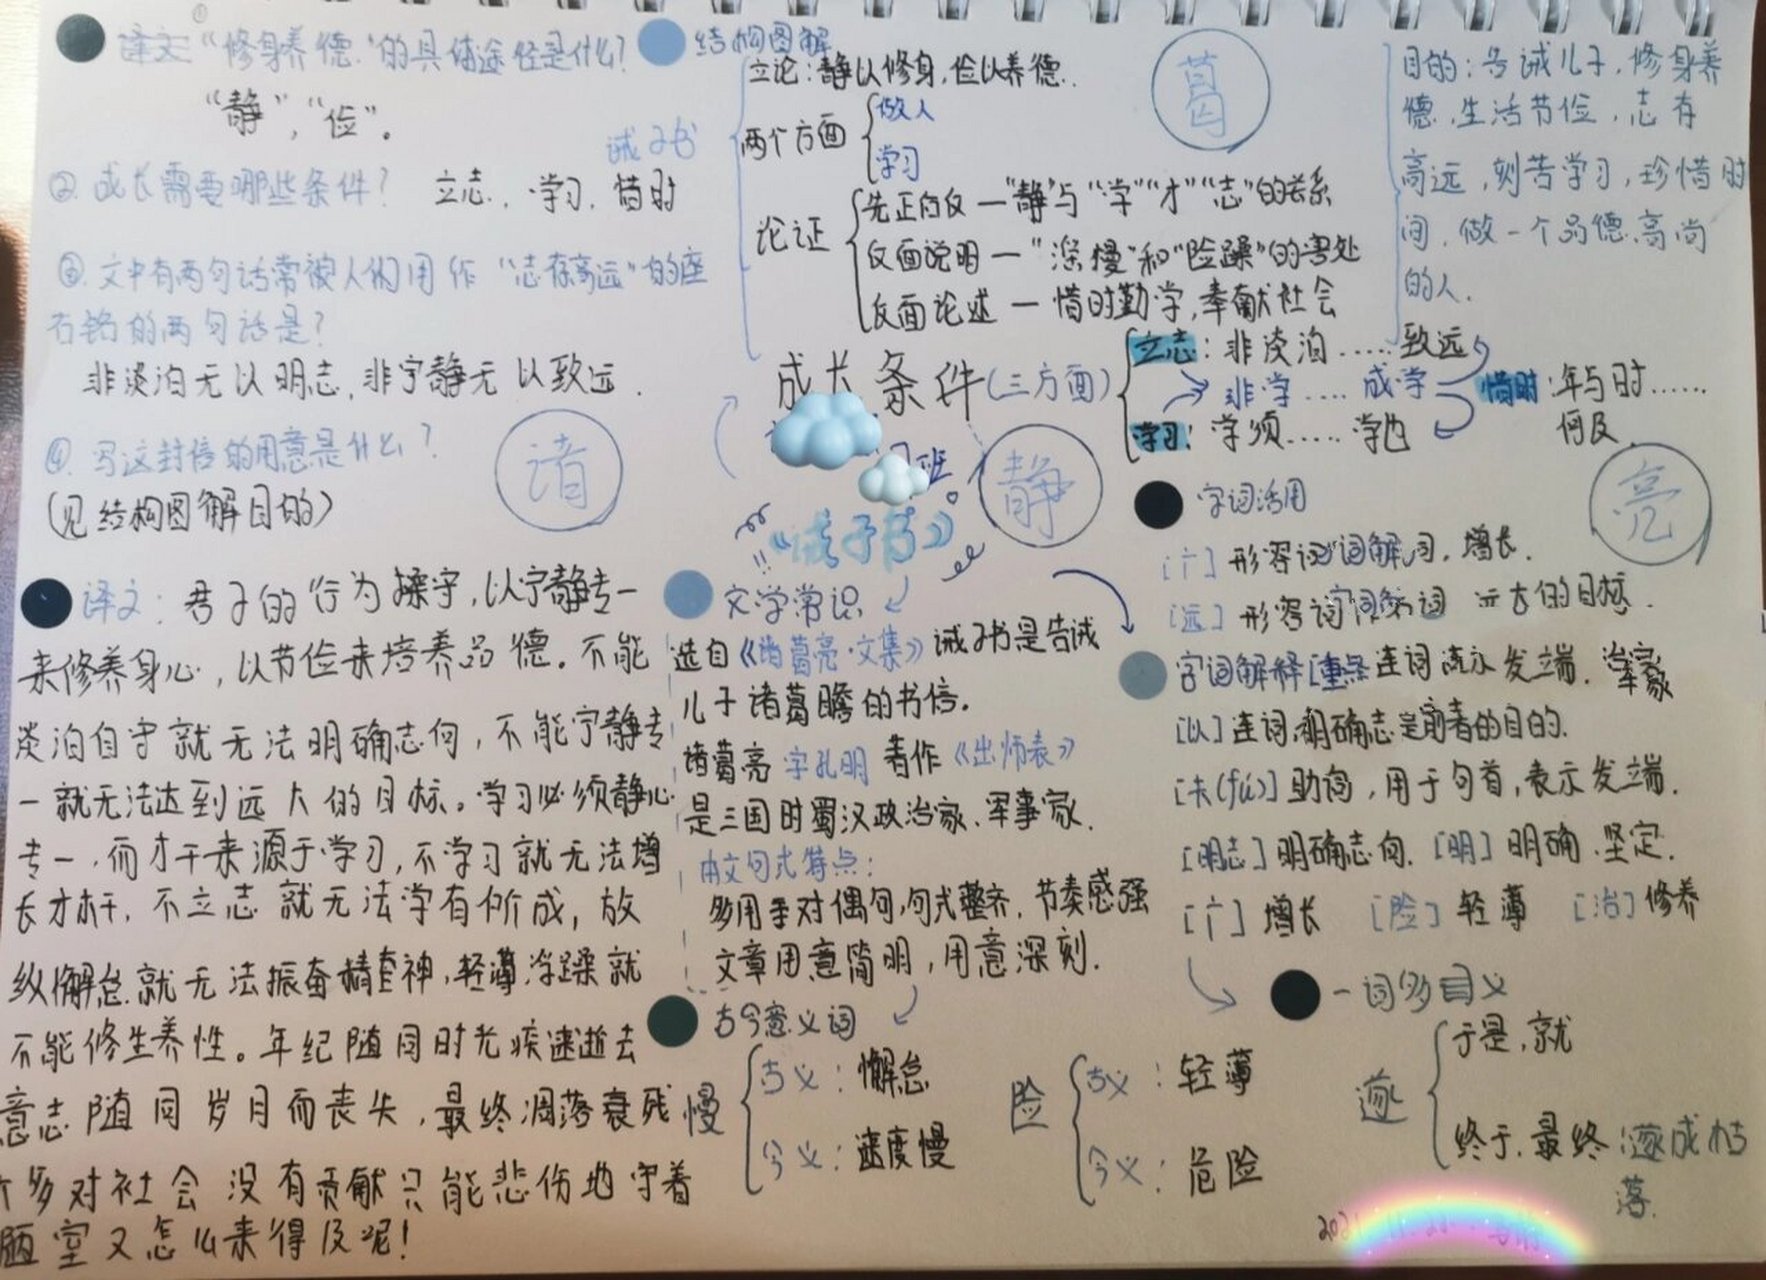 "修身养德"的具体途径是什么?
"静","俭"。
诫子书
② 成长需要哪些条件? 立志、学习、惜时
③ 文中有两句话常被人们用作"志存高远"的座
右铭的两句话是?
非淡泊无以明志,非宁静无以致远.
④. 写这封信的用意是什么?
(见结构图解目的)
译文: 君子的行为操守,以宁静专一
来修养身心,以节俭来培养品德。不能
淡泊自守就无法明确志向,不能宁静专
一就无法达到远大的目标。学习必须静心
专一,而才干来源于学习,不学习就无法增
长才干,不立志就无法学有所成,放
纵懈怠就无法振奋精神,轻薄浮躁就
不能修生养性。年纪随同时光疾速逝去
意志随同岁月而丧失,最终凋落衰残
多对社会没有贡献只能悲伤地守着
陋室又怎么来得及呢!
结构图解
立论:静以修身,俭以养德.
两个方面
做人
学习
论证
先正向反—"静"与"学""才""志"的关系
反面说明—"淫慢"和"险躁"的害处
反面论述—惜时勤学,奉献社会
目的:告诫儿子,修身养
德,生活节俭,志存
高远,刻苦学习,珍惜时
间,做一个品德高尚
的人.
成长条件(三方面)
立志:非淡泊……致远
非学……成学
学习:学须……学也
惜时:年与时……
何及.
葛
诸
静
亮
班
《诫子书》
文学常识
选自《诸葛亮·文集》诫子书是告诫
儿子诸葛瞻的书信.
诸葛亮 字孔明 著作《出师表》
是三国时蜀汉政治家、军事家.
本文句式特点:
多用手对偶句,句式整齐,节奏感强
文章用意简明,用意深刻.
古今意义词
慢
古义:懈怠
今义:速度慢
险
古义:轻薄
今义:危险
字词活用
[广] 形容词 增长.
[远] 形容词 远大的目标.
字词解释 连词 发端.
[以] 连词,明确志是前者的目的.
[夫(fú)] 助词,用于句首,表示发端.
[明志] 明确志向. [明] 明确、坚定.
[广] 增长 [险] 轻薄 [治] 修养
一词多义
遂
于是,就
终于,最终:遂成枯
落.